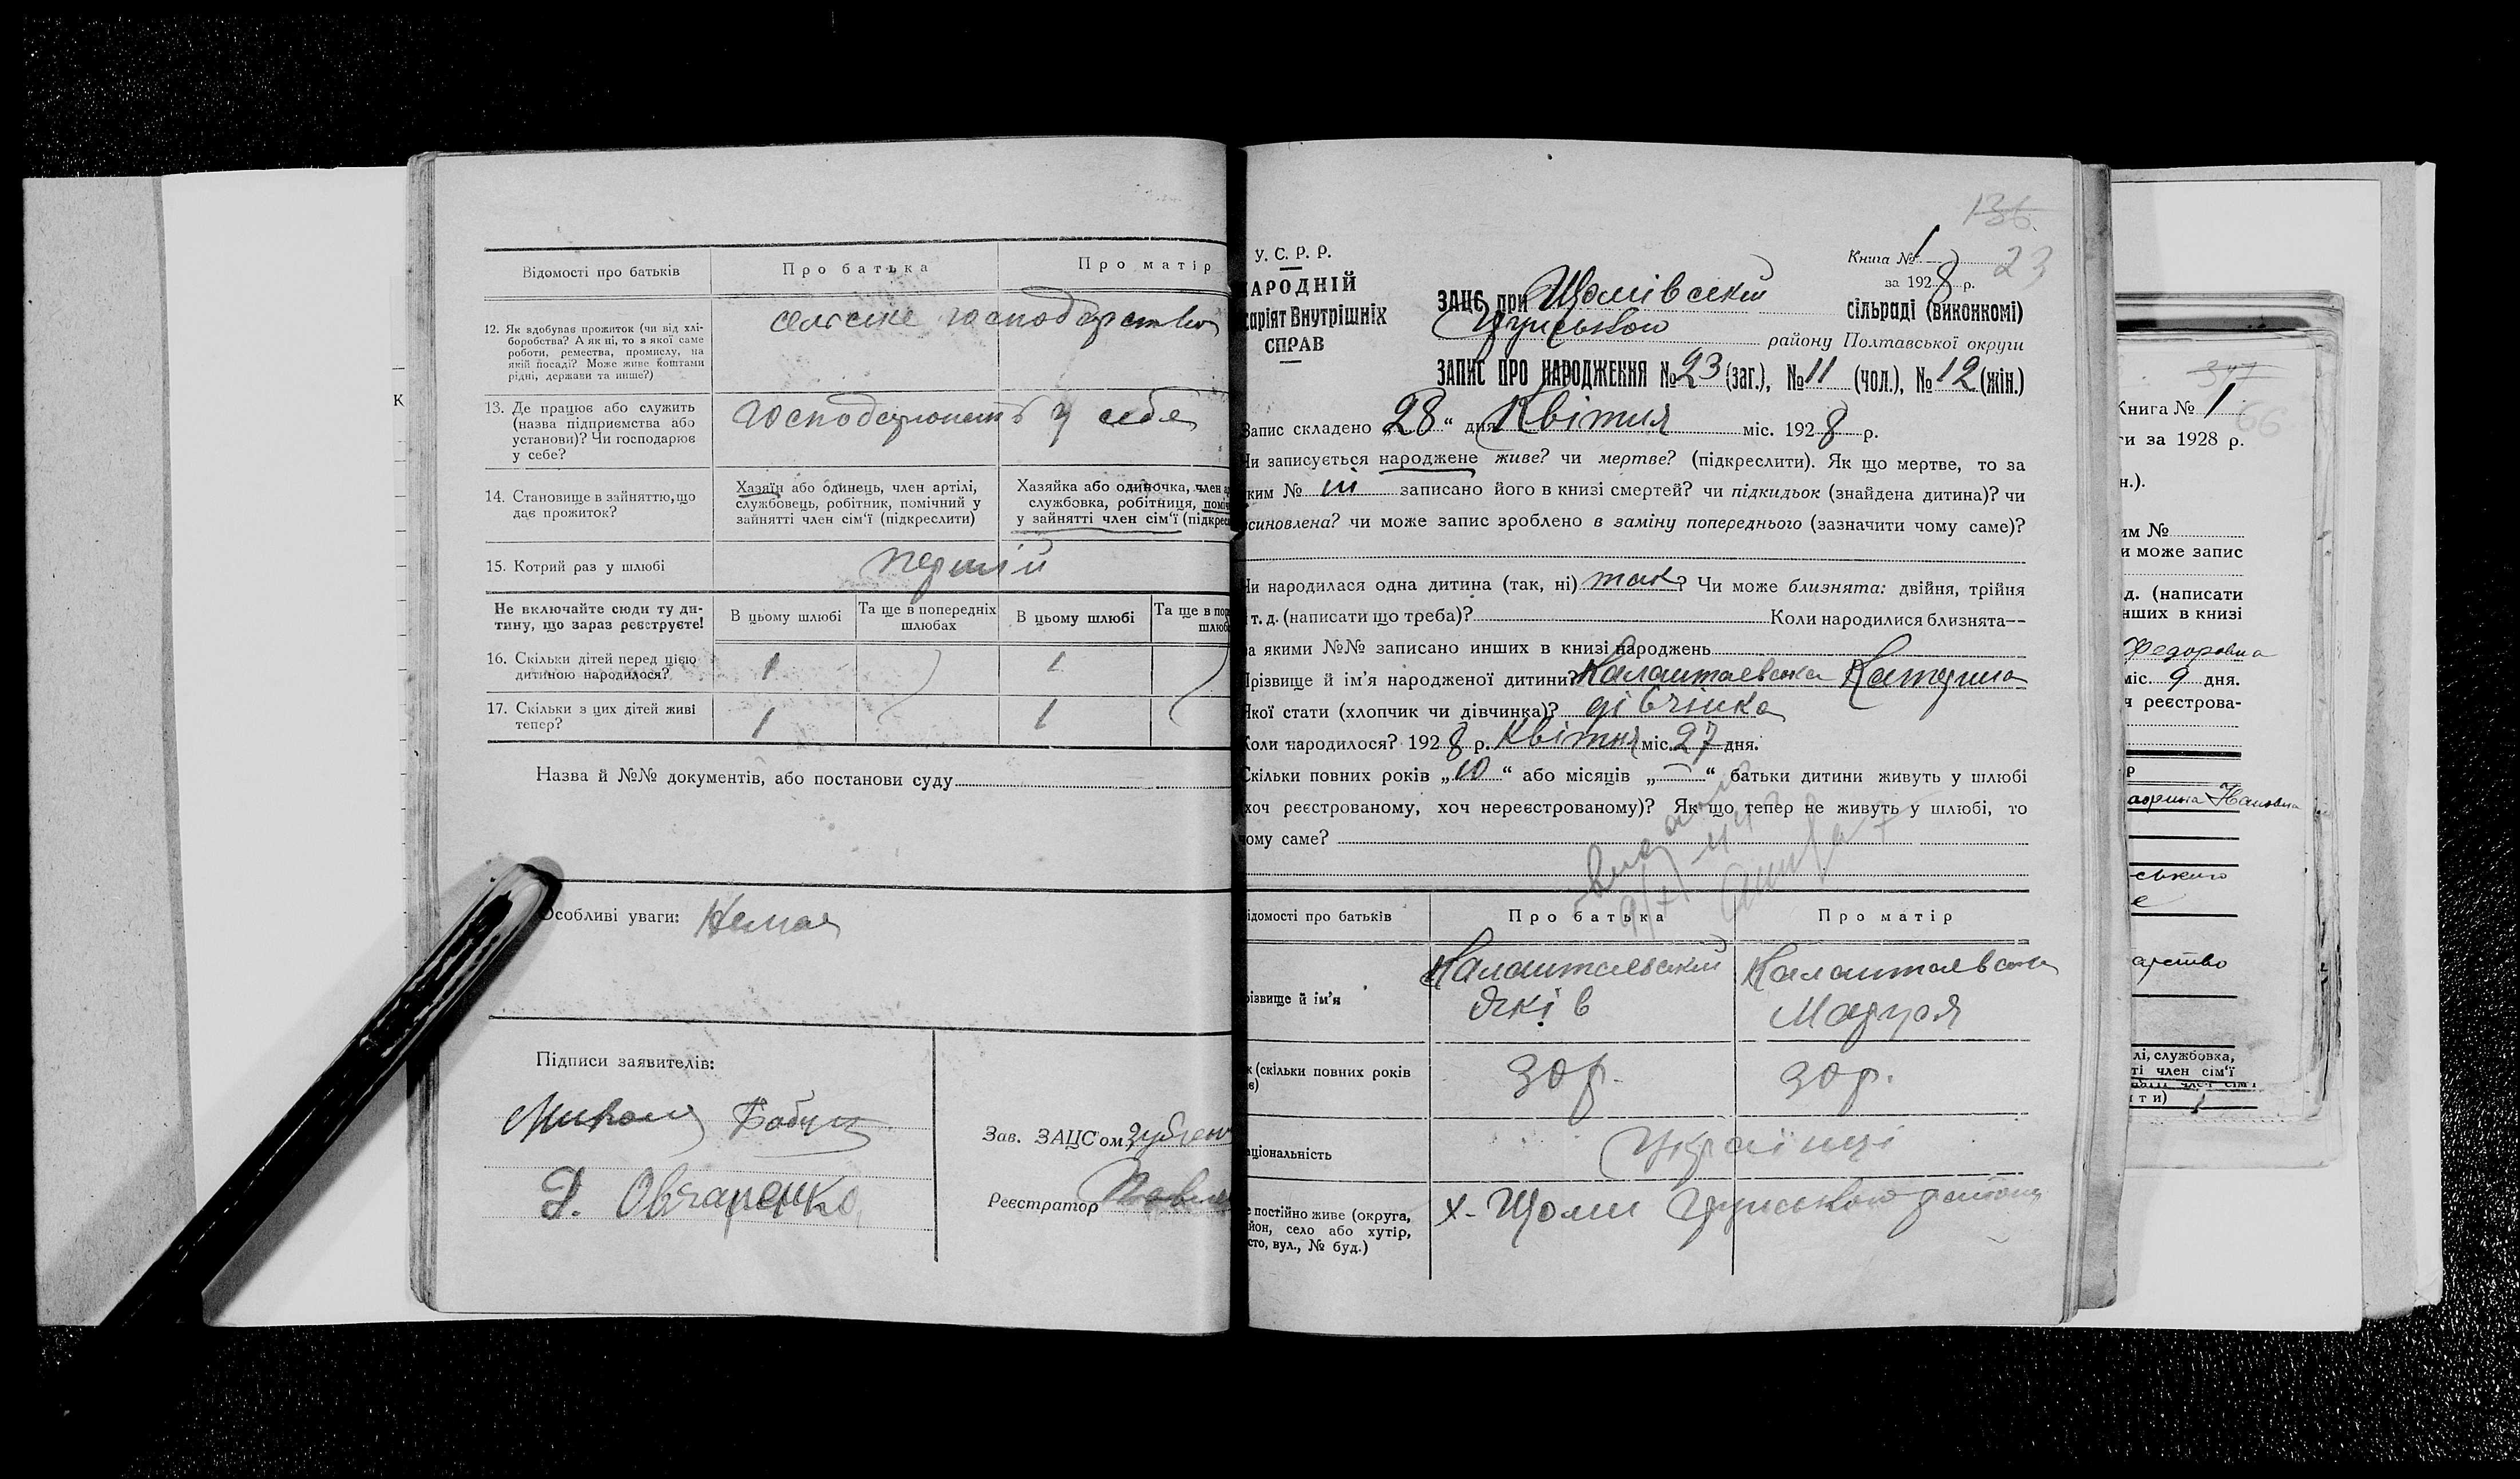 Відомості про батьків
Про батька
Про матір
12. Як здобуває прожиток (чи від хлі-
боробства? А як ні, то з якої саме
роботи, ремества, промислу, на
якій посаді? Може живе коштами
рідні, держави та инше?)
сельське господарство
13. Де працює або служить
(назва підприємства або
установи)? Чи господарює
у себе?
господарюють у себе
14. Становище в зайняттю, що
дає прожиток?
Хазяїн або одинець, член артілі,
службовець, робітник, помічний у
зайнятті член сім'ї (підкреслити)
Хазяйка або одиночка, член
службовка, робітниця,
у зайнятті член сім'ї
15. Котрий раз у шлюбі
перший
Не включайте сюди ту ди-
тину, що зараз реєструєте!
В цьому шлюбі
Та ще в попередніх
шлюбах
В цьому шлюбі
Та ще в
16. Скільки дітей перед цією
дитиною народилося?
1
1
17. Скільки з цих дітей живі
тепер?
1
1
Назва й №№ документів, або постанови суду
Особливі уваги: Немає
Підписи заявителів:
Микола
Я. Овчаренко
Зав. ЗАЦС'ом
Реєстратор
136.
23
У. С. Р. Р.
АРОДНІЙ
аріят Внутрішніх
СПРАВ
Книга № 1
за 1928 р.
ЗАЦС при Щомівській
сільраді (виконкомі)
району Полтавської округи
ЗАПИС ПРО НАРОДЖЕННЯ № 23 (заг.), № 11 (чол.), № 12 (жін.)
Запис складено „28“ дня Квітня міс. 1928 р.
Чи записується народжене живе? чи мертве? (підкреслити). Як що мертве, то за
яким № записано його в книзі смертей? чи підкидьок (знайдена дитина)? чи
всиновлена? чи може запис зроблено в заміну попереднього (зазначити чому саме)?
Чи народилася одна дитина (так, ні) так? Чи може близнята: двійня, трійня
і т. д. (написати що треба)? Коли народилися близнята—
за якими №№ записано инших в книзі народжень
Прізвище й ім'я народженої дитини? Калантаєвська Катерина
Якої стати (хлопчик чи дівчинка)? дівчінка
Коли народилося? 1928 р. Квітня міс. 27 дня.
Скільки повних років „10“ або місяців „—“ батьки дитини живуть у шлюбі
(хоч реєстрованому, хоч нереєстрованому)? Як що тепер не живуть у шлюбі, то
чому саме?
Відомості про батьків
Про батька
Про матір
Прізвище й ім'я
Калантаєвський
Яків
Калантаєвська
Маруся
(скільки повних років
30 р.
30 р.
Національність
Українці
постійно живе (округа,
село або хутір,
вул., № буд.)
х. Щоми
району
347
Книга № 1
66
за 1928 р.
им №
може запис
д. (написати
нших в книзі
Федоровна
міс. 9 дня.
реєстрова-
ського
арство
службовка,
член сім'ї